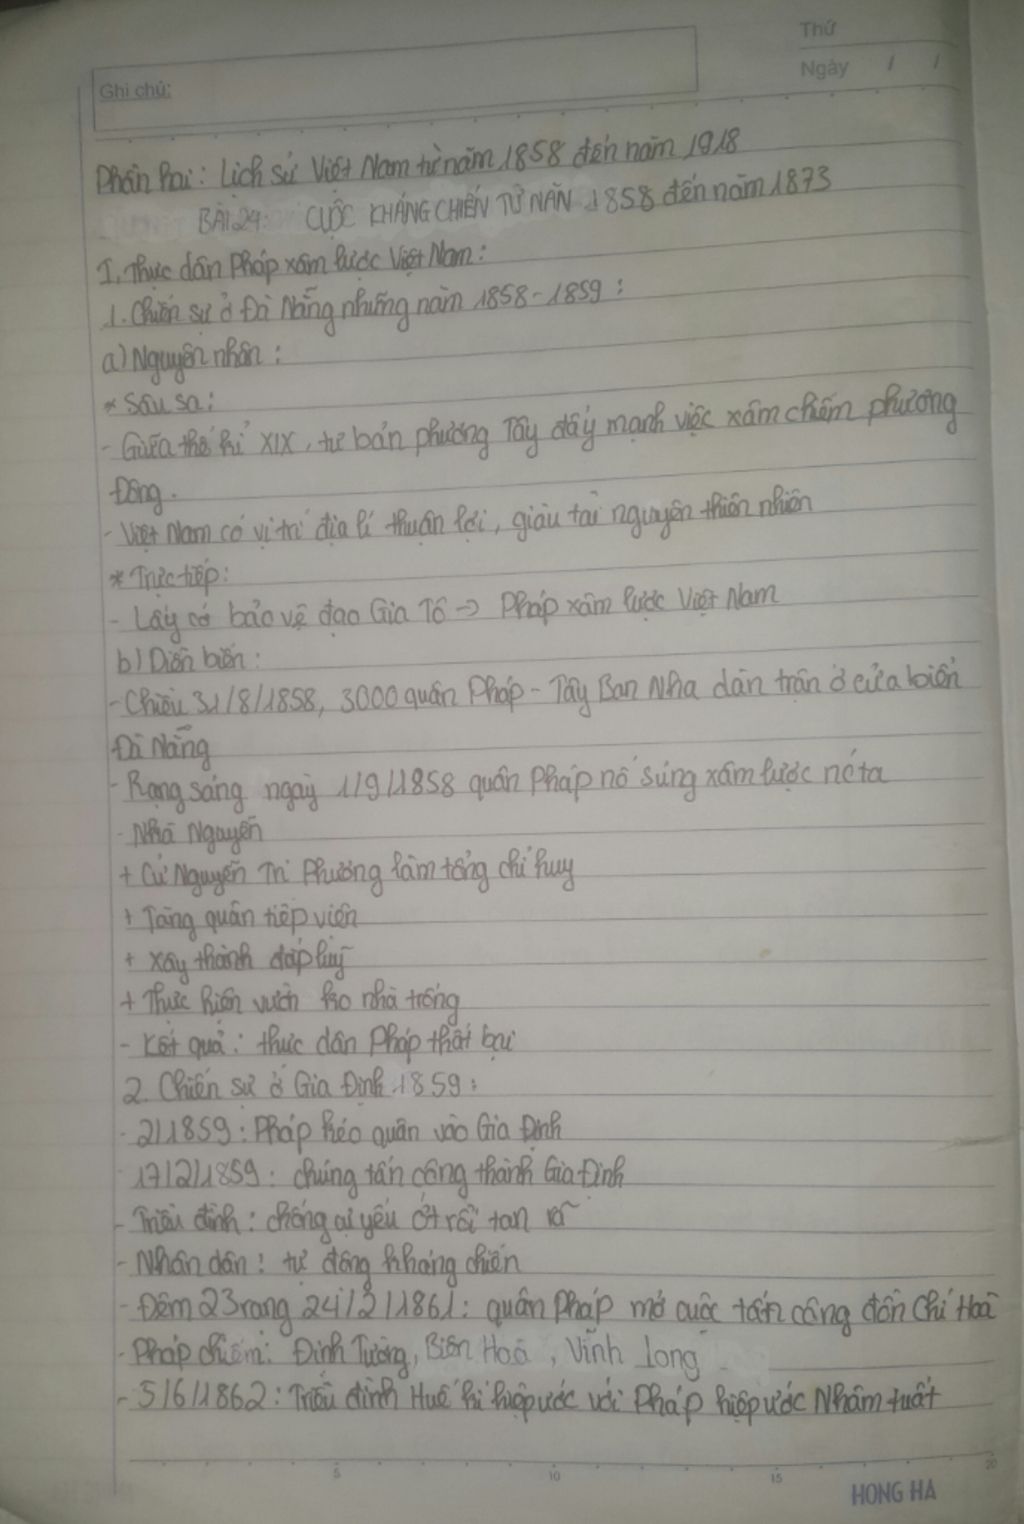 Thứ
Ngày / /
Ghi chú:
Phần hai: Lịch sử Việt Nam từ năm 1858 đến năm 1918
BÀI 24: CUỘC KHÁNG CHIẾN TỪ NĂN 1858 đến năm 1873
I. Thực dân Pháp xâm lược Việt Nam:
1. Chiến sự ở Đà Nẵng những năm 1858-1859:
a) Nguyên nhân:
* Sâu sa:
- Giữa thế kỉ XIX, tư bản phương Tây đẩy mạnh việc xâm chiếm phương
Đông.
- Việt Nam có vị trí địa lí thuận lợi, giàu tài nguyên thiên nhiên
* Trực tiếp:
- Lấy cớ bảo vệ đạo Gia Tô -> Pháp xâm lược Việt Nam
b) Diễn biến:
- Chiều 31/8/1858, 3000 quân Pháp - Tây Ban Nha dàn trận ở cửa biển
Đà Nẵng
- Rạng sáng ngày 1/9/1858 quân Pháp nổ súng xâm lược nc ta
- Nhà Nguyễn
+ Cử Nguyễn Tri Phương làm tổng chỉ huy
+ Tăng quân tiếp viện
+ Xây thành đắp luỹ
+ Thực hiện vườn ko nhà trống
- Kết quả: thực dân Pháp thất bại
2. Chiến sự ở Gia Định 1859:
- 2/1859: Pháp kéo quân vào Gia Định
- 17/2/1859: chúng tấn công thành Gia Định
- Triều đình: chống cự yếu ớt rồi tan rã
- Nhân dân: tự động kháng chiến
- Đêm 23 rạng 24/2/1861: quân Pháp mở cuộc tấn công đồn Chí Hoà
- Pháp chiếm: Định Tường, Biên Hoà, Vĩnh Long
- 5/6/1862: Triều đình Huế kí hiệp ước với Pháp hiệp ước Nhâm tuất
5 10 15 20
HONG HA